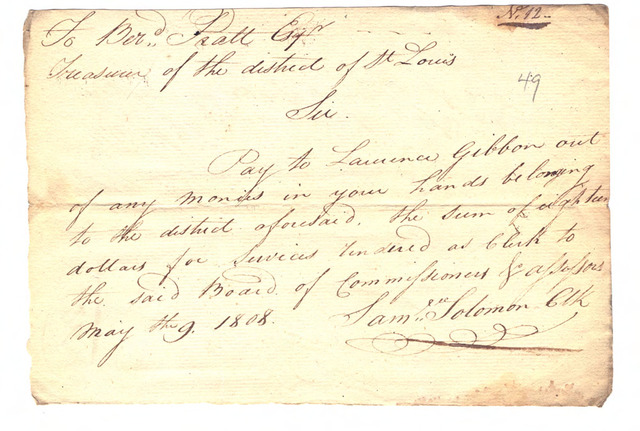 No. 12.
To Berd. Pratt Esqr
Treasurer of the district of St Louis
49
Sir.
Pay to Laurence Gibbon out
of any monies in your hands belonging
to the district aforesaid, the sum of eighteen
dollars for services rendered as Clerk to
the said Board of Commissioners & assessors
May the 9. 1808.
Saml. Solomon Clk